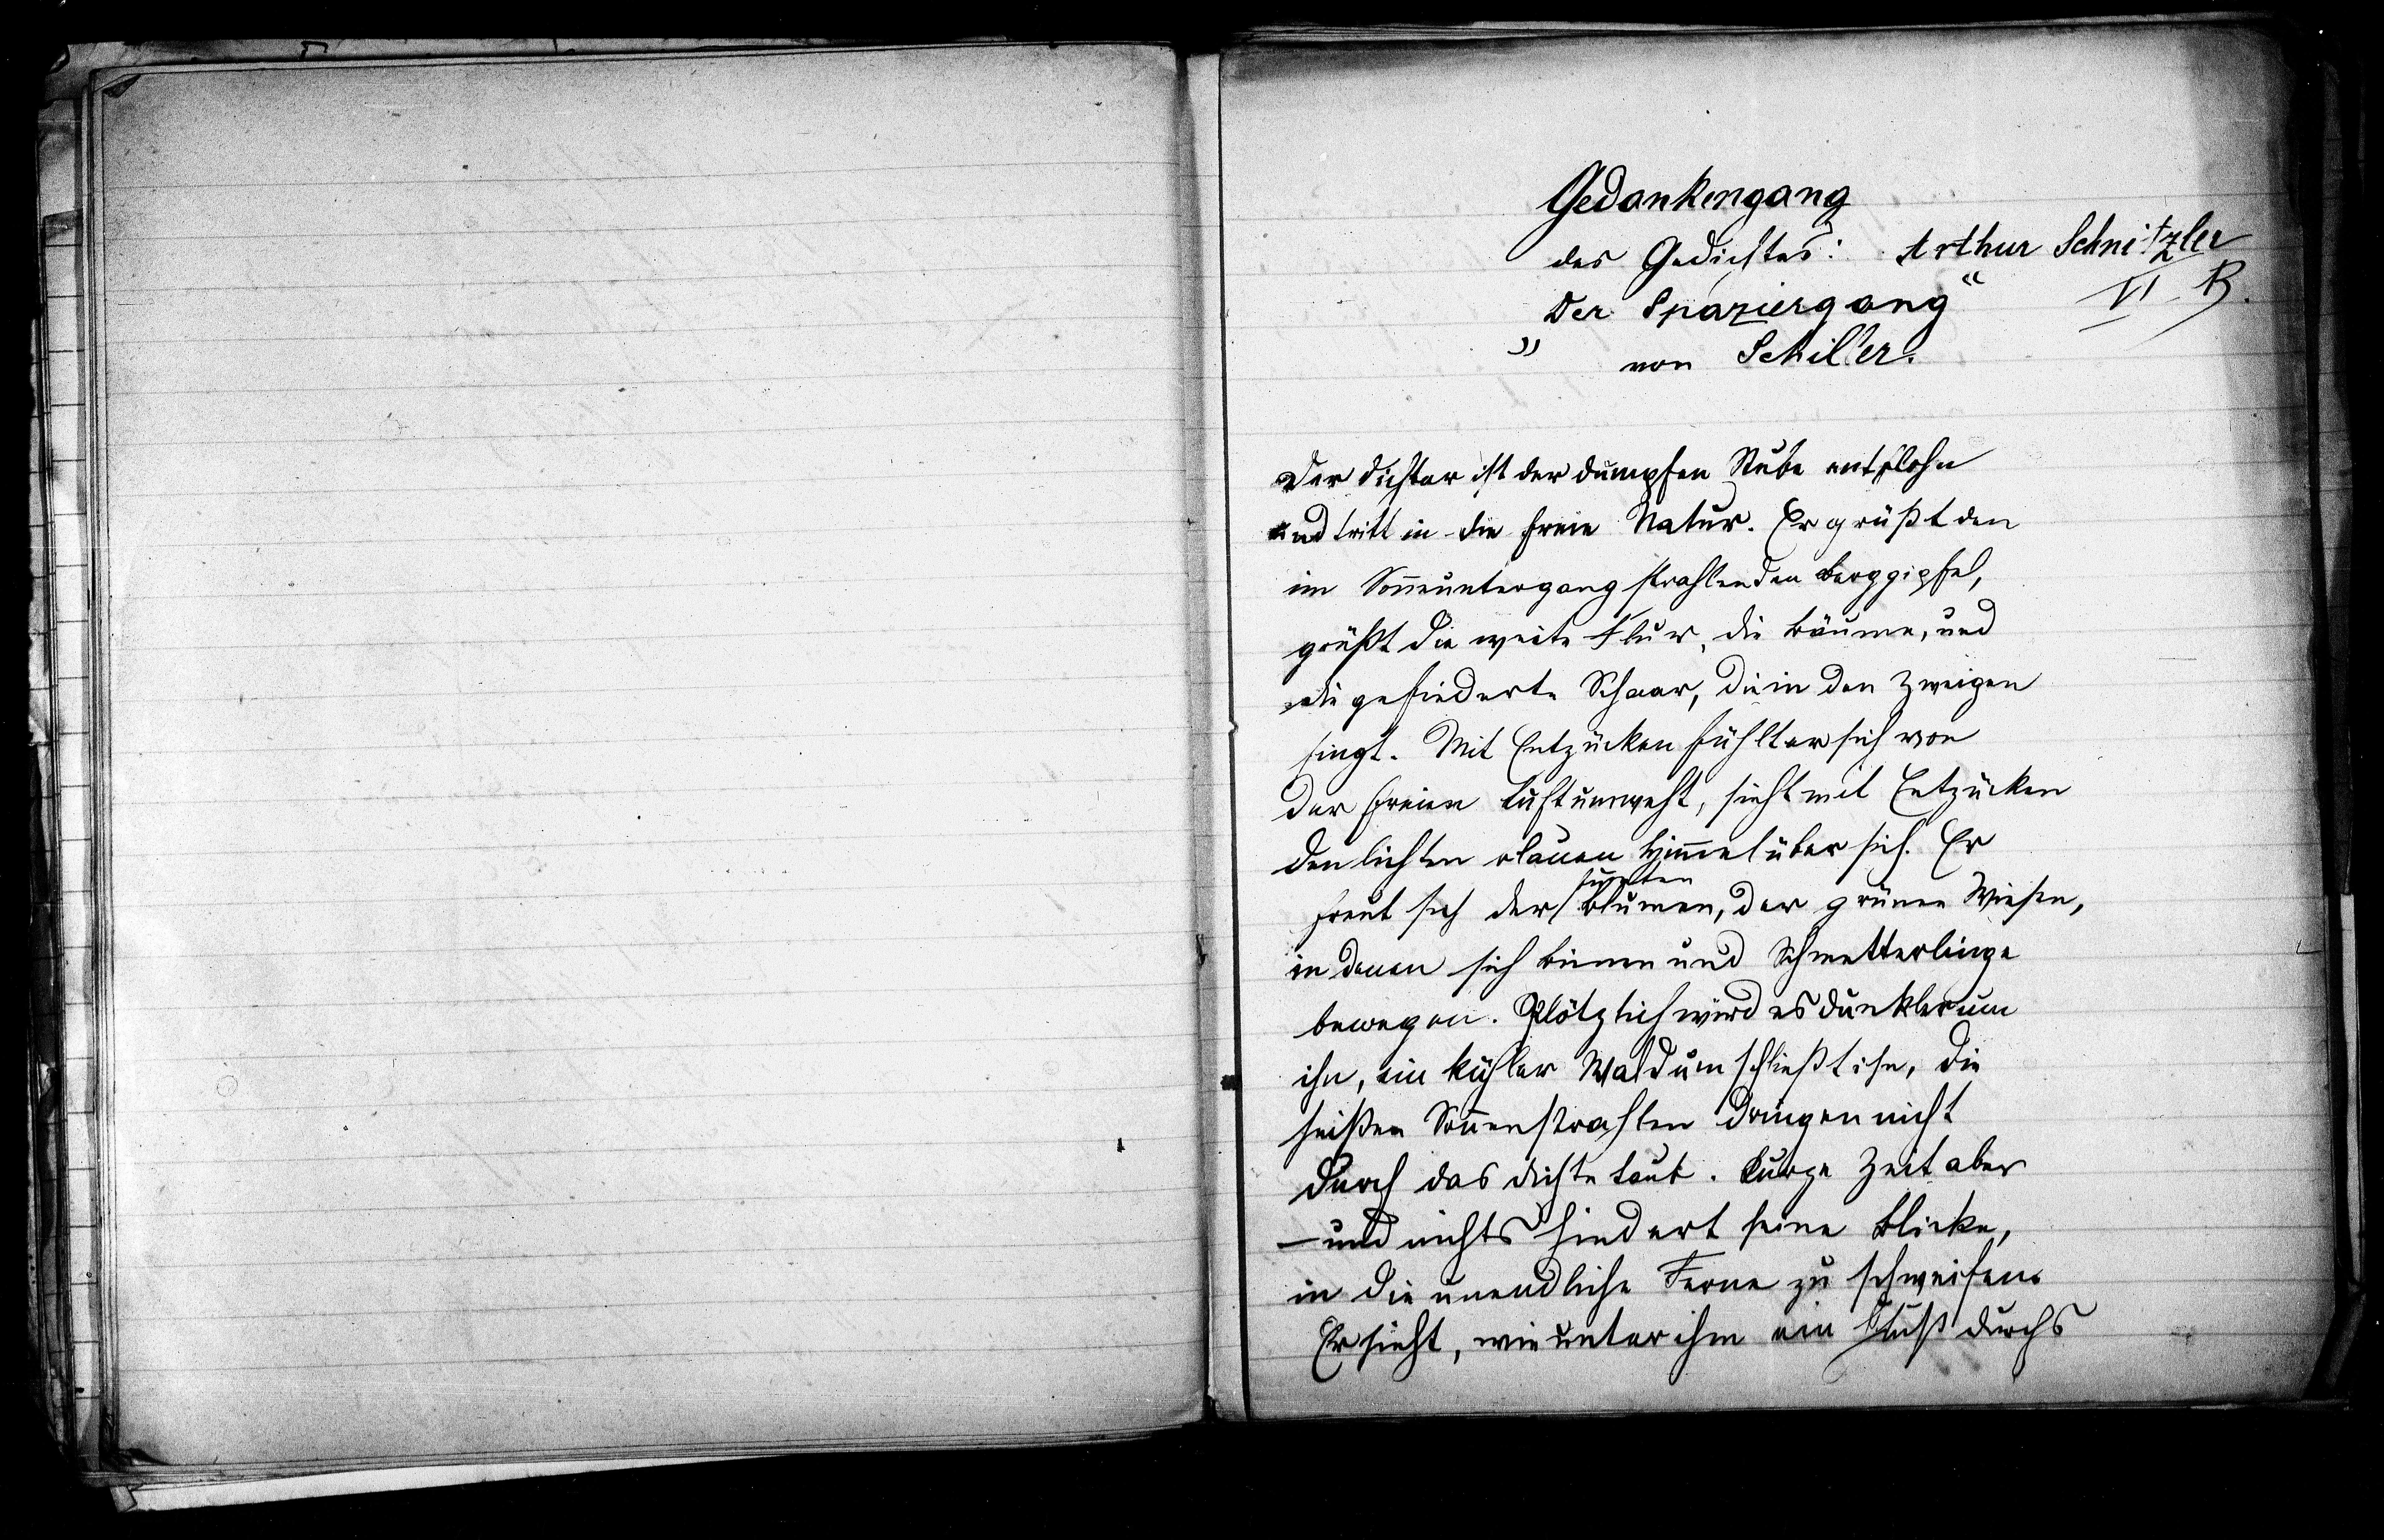 Gedankengang
des Gedichtes: Arthur Schnitzler
„Der Spaziergang“ VI. B.
von Schiller.
Der Dichter ist der dumpfen Stube entflohn
und tritt in die freie Natur. Er grüßt den
im Sonneuntergang strahlenden Berggipfel,
grüßt die weite Flur, die Bäume, und
die gefiederte Schaar, die in den Zweigen
singt. Mit Entzücken fühlt er sich von
der freien Luft umweht, sieht mit Entzücken
den lichten blauen Himmel über sich. Er
bunten
freut sich der Blumen, der grünen Wiesen,
in denen sich Bienen und Schmetterlinge
bewegen. Plötzlich wird es dunkler um
ihn, ein kühler Wald umschließt ihn, die
heißen Sonnenstrahlen dringen nicht
durch das dichte Laub. Kurze Zeit aber
– und nichts hindert seine Blicke,
in die unendliche Ferne zu schweifen.
Er sieht, wie unter ihm ein Fluß durchs